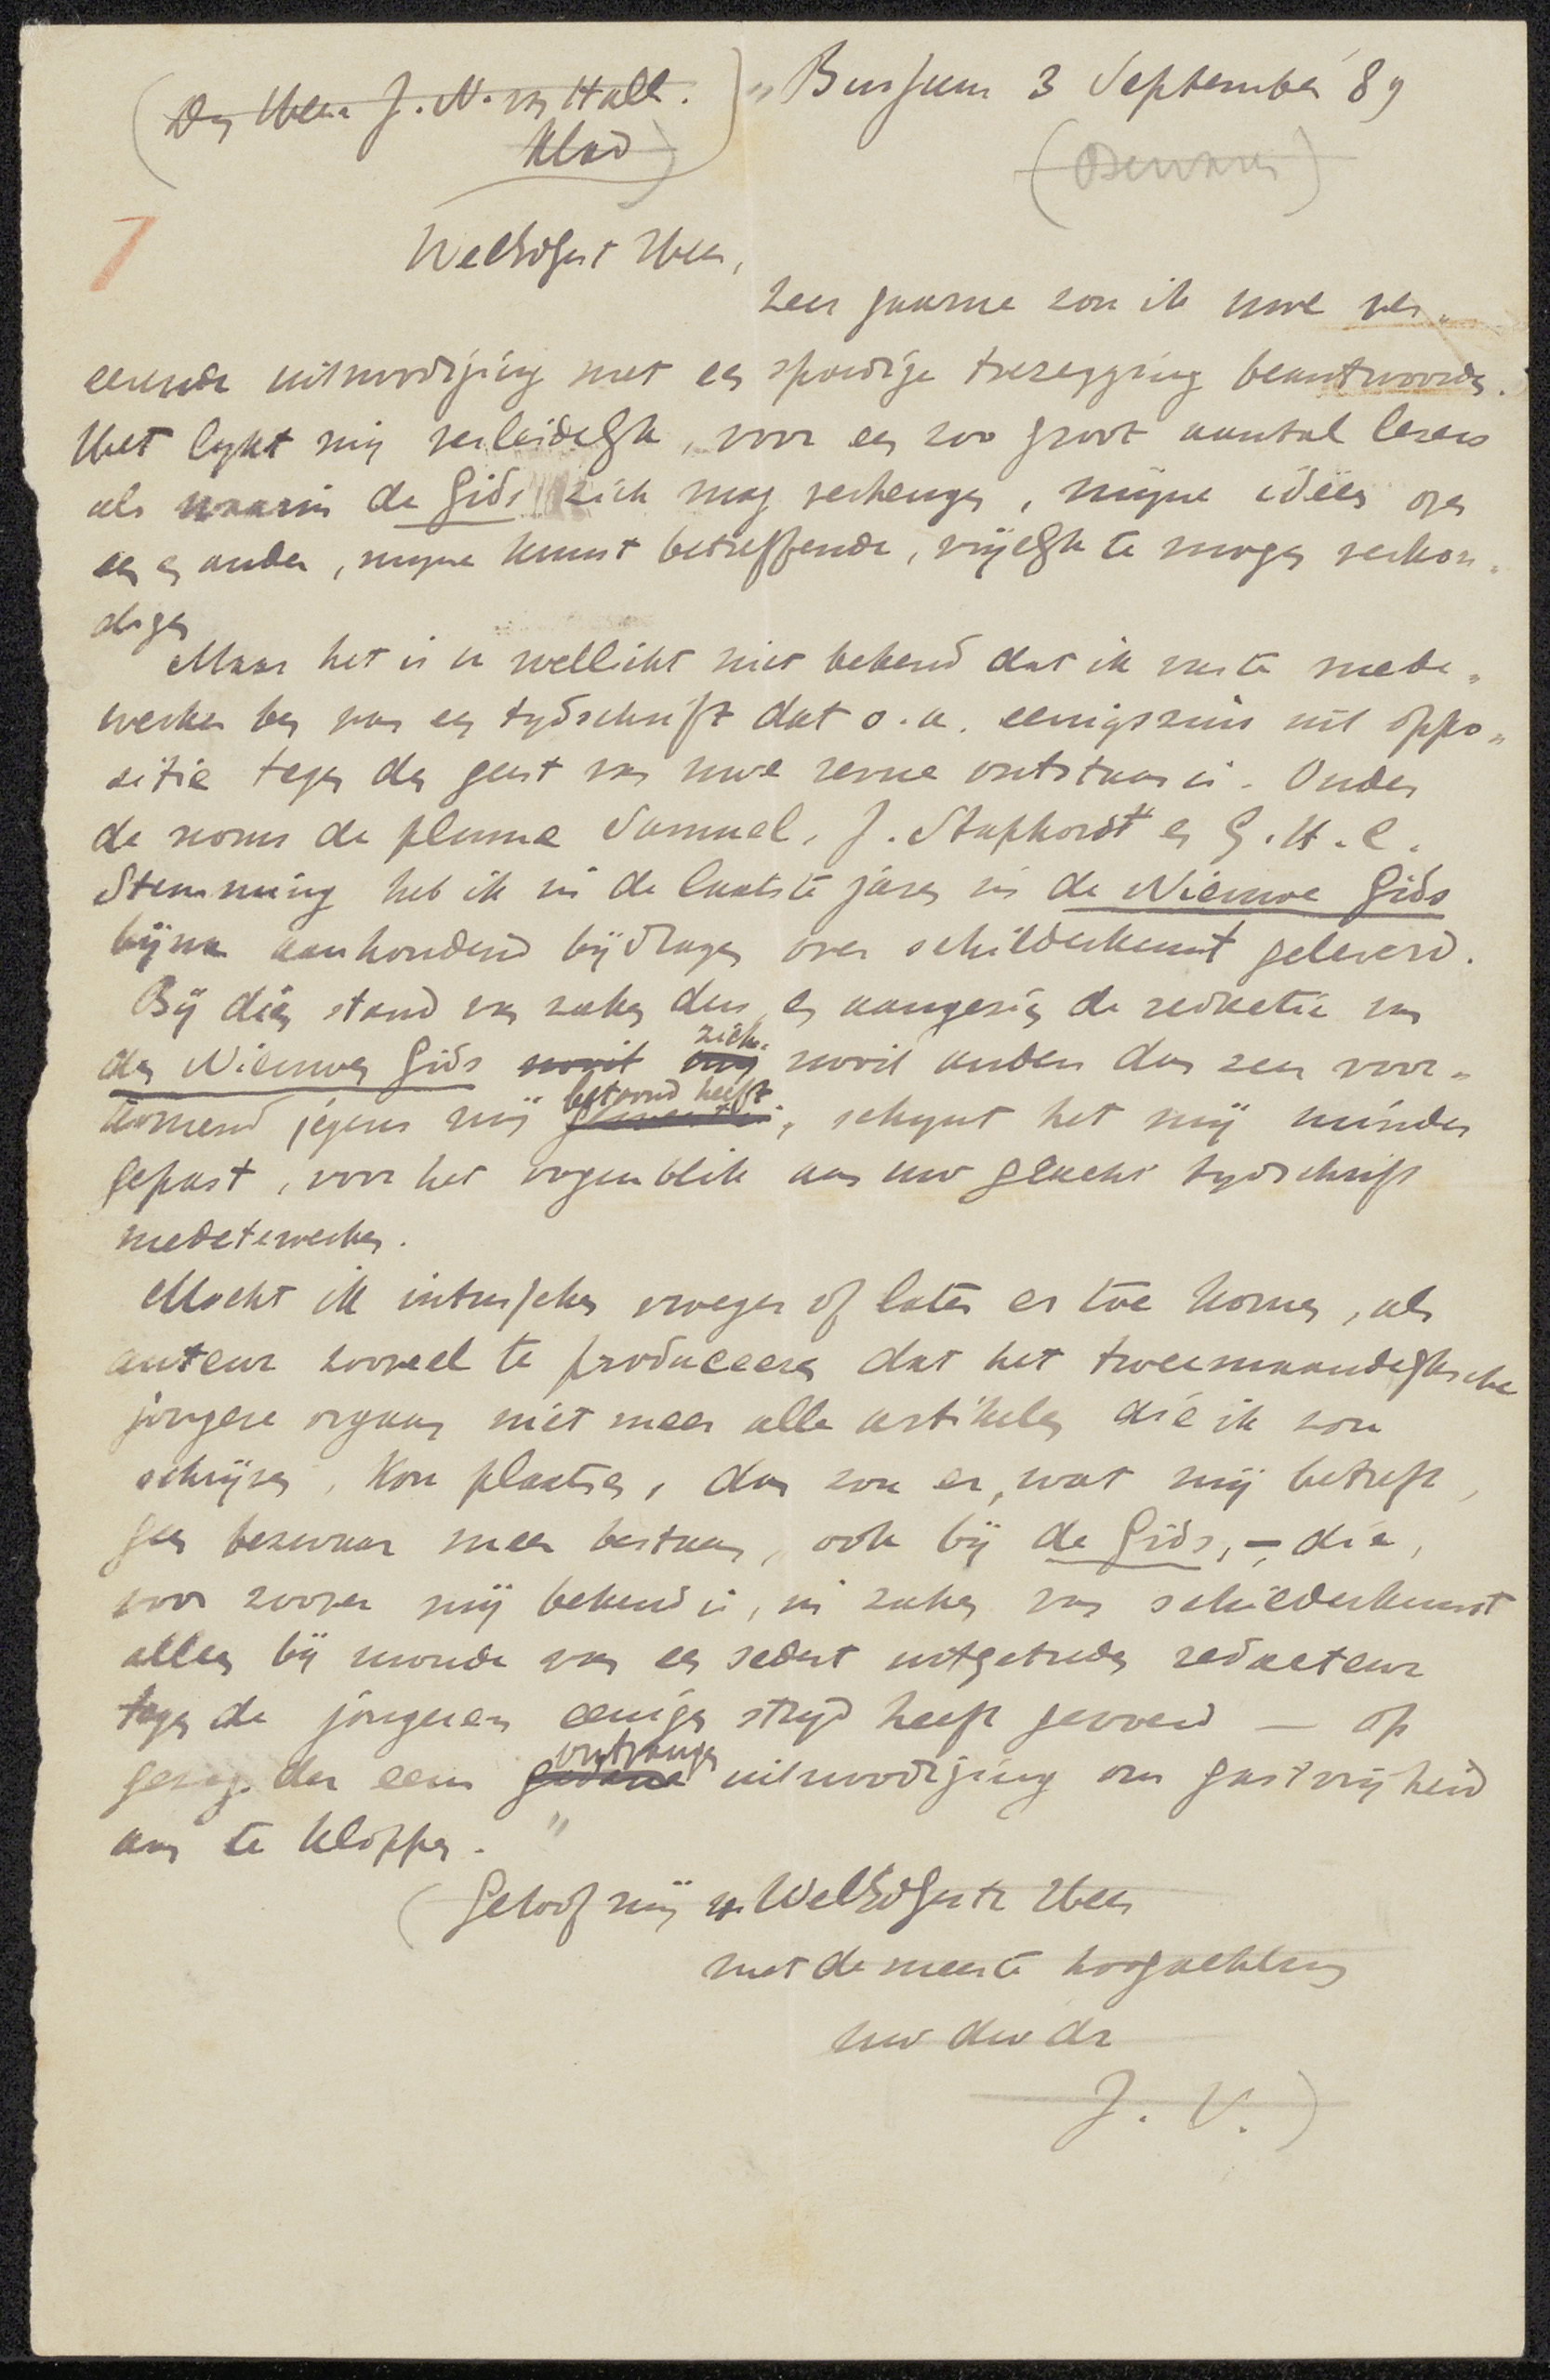 (Den Heer J. N. van Hall.
Klad)
„Bussum 3 September 89
(Bewaren)
7
WelEdGest Heer,
Zeer gaarne zou ik uwe ver„
eerende uitnoodiging met een spoedige toezegging beantwoorden.
Het lykt mij verleidelijk, voor een zoo groot aantal lezers
als waarin de Gids zich mag verheugen, mijne ideën over
een en ander, myne kunst betreffende, vrijelijk te mogen verkon„
digen
Maar het is u wellicht niet bekend dat ik vaste mede„
werker ben van een tydschrift dat o.a. eenigszins uit oppo„
sitie tegen den geest van uwe revue ontstaan is. Onder
de noms de plume Samuel, J. Staphorst en G.H.C.
Stemming heb ik in de laatste jaren in de Nieuwe Gids
bijna aanhoudend bijdragen over schilderkunst geleverd.
Bij dien stand van zaken dus, en aangezien de redactie van
den Nieuwen Gids nooit mij zich nooit anders dan zeer voor„
komend jegens mij betoond heeft, schynt het mij minder
gepast, voor het oogenblik aan uw geacht tydschrift
medetewerken.
Mocht ik intusschen vroeger of later er toe komen, als
auteur zooveel te produceeren dat het tweemaandelijksche
jongere orgaan niet meer alle artikelen die ik zou
schrijven, kon plaatsen, dan zou er, wat mij betreft,
geen bezwaar meer bestaan, ook bij de Gids, – die,
voor zoover mij bekend is, in zaken van schilderkunst
alleen bij monde van een sedert uitgetreden redacteur
tegen de jongeren eenigen stryd heeft gevoerd — op
gezag der eens gedane ontvangen uitnoodiging om gastvrijheid
aan te kloppen. "
(Geloof mij WelEdGeste Heer
met de meeste hoogachting
uw dw dr
J. V.)